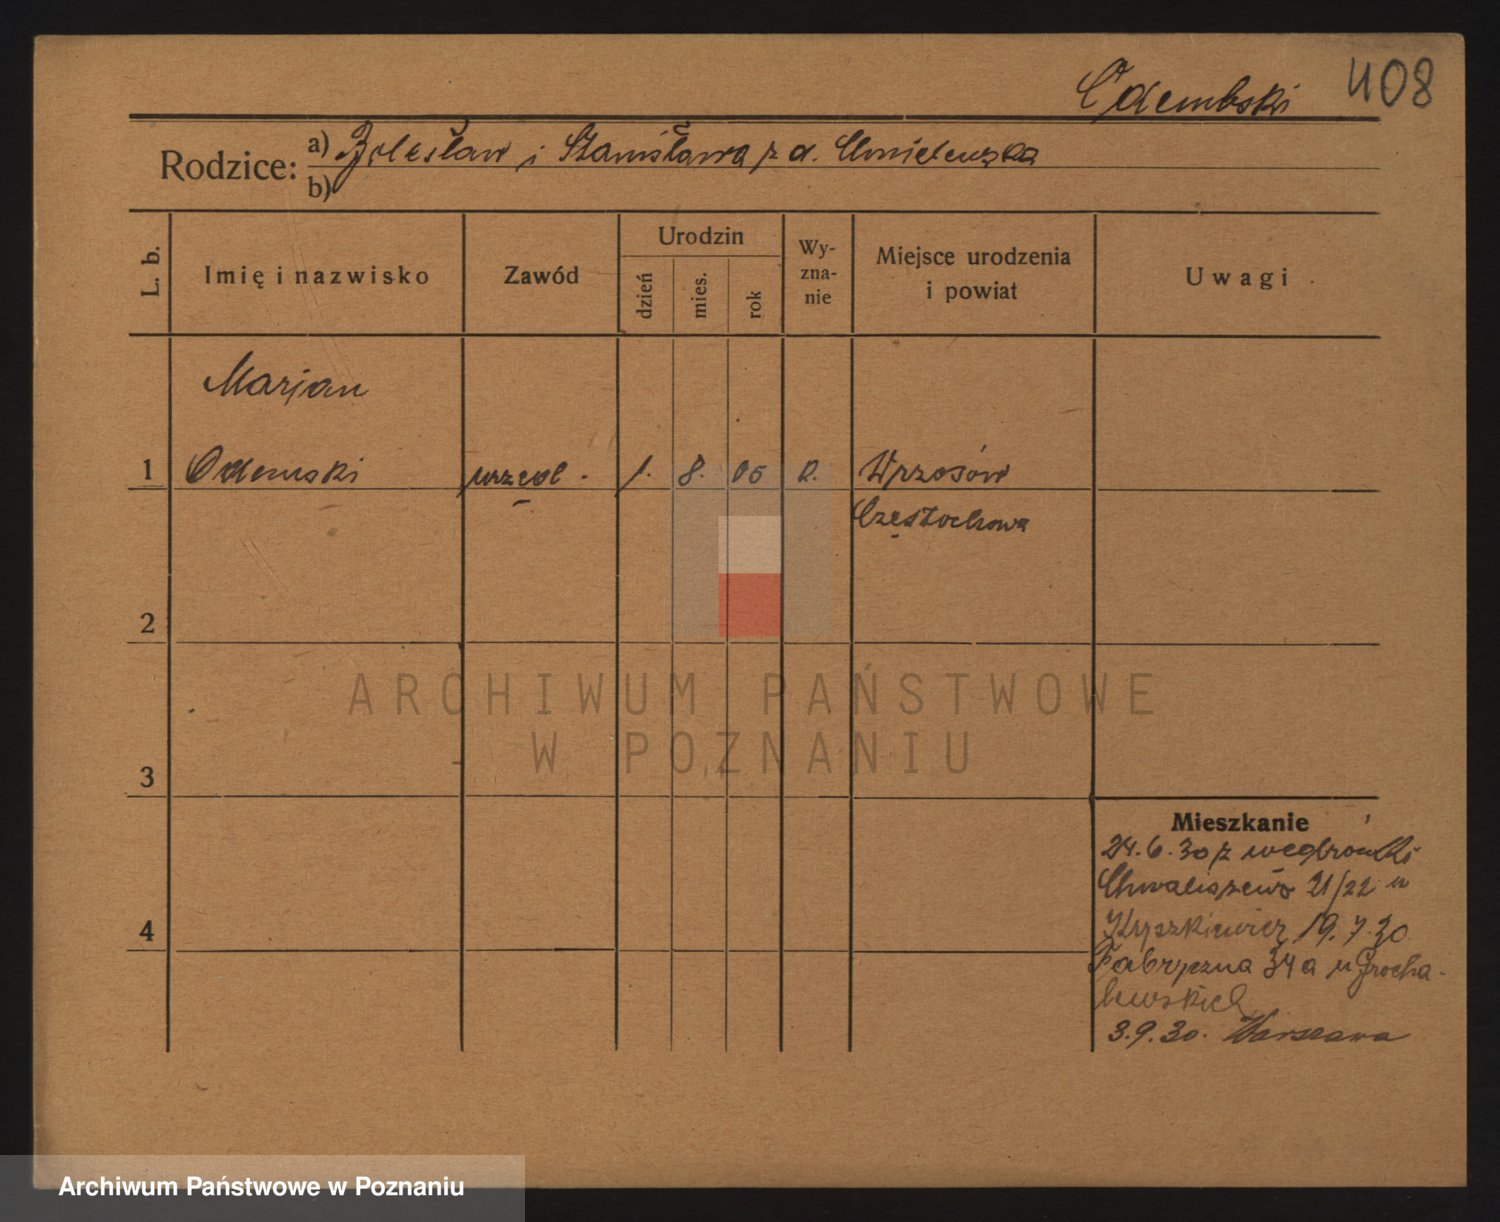 Odembski 408
Rodzice: a) Bolesław i Stanisława z d. Chmielewska
b)
L. b.
Imię i nazwisko
Zawód
Urodzin
dzień
mies.
rok
Wy-
zna-
nie
Miejsce urodzenia
i powiat
Uwagi
Marjan
1 Odemski urzęd. 1. 8. 06 R. Wrzosów
Częstochowa
2
3
4
Mieszkanie
24.6.30 z
Chwaliszewo 21/22 u
Kryszkiewicz 19.7.30
Fabryczna 34a u Grocha-
lewskich
3.9.30. Warszawa
ARCHIWUM PAŃSTWOWE
W POZNANIU
Archiwum Państwowe w Poznaniu